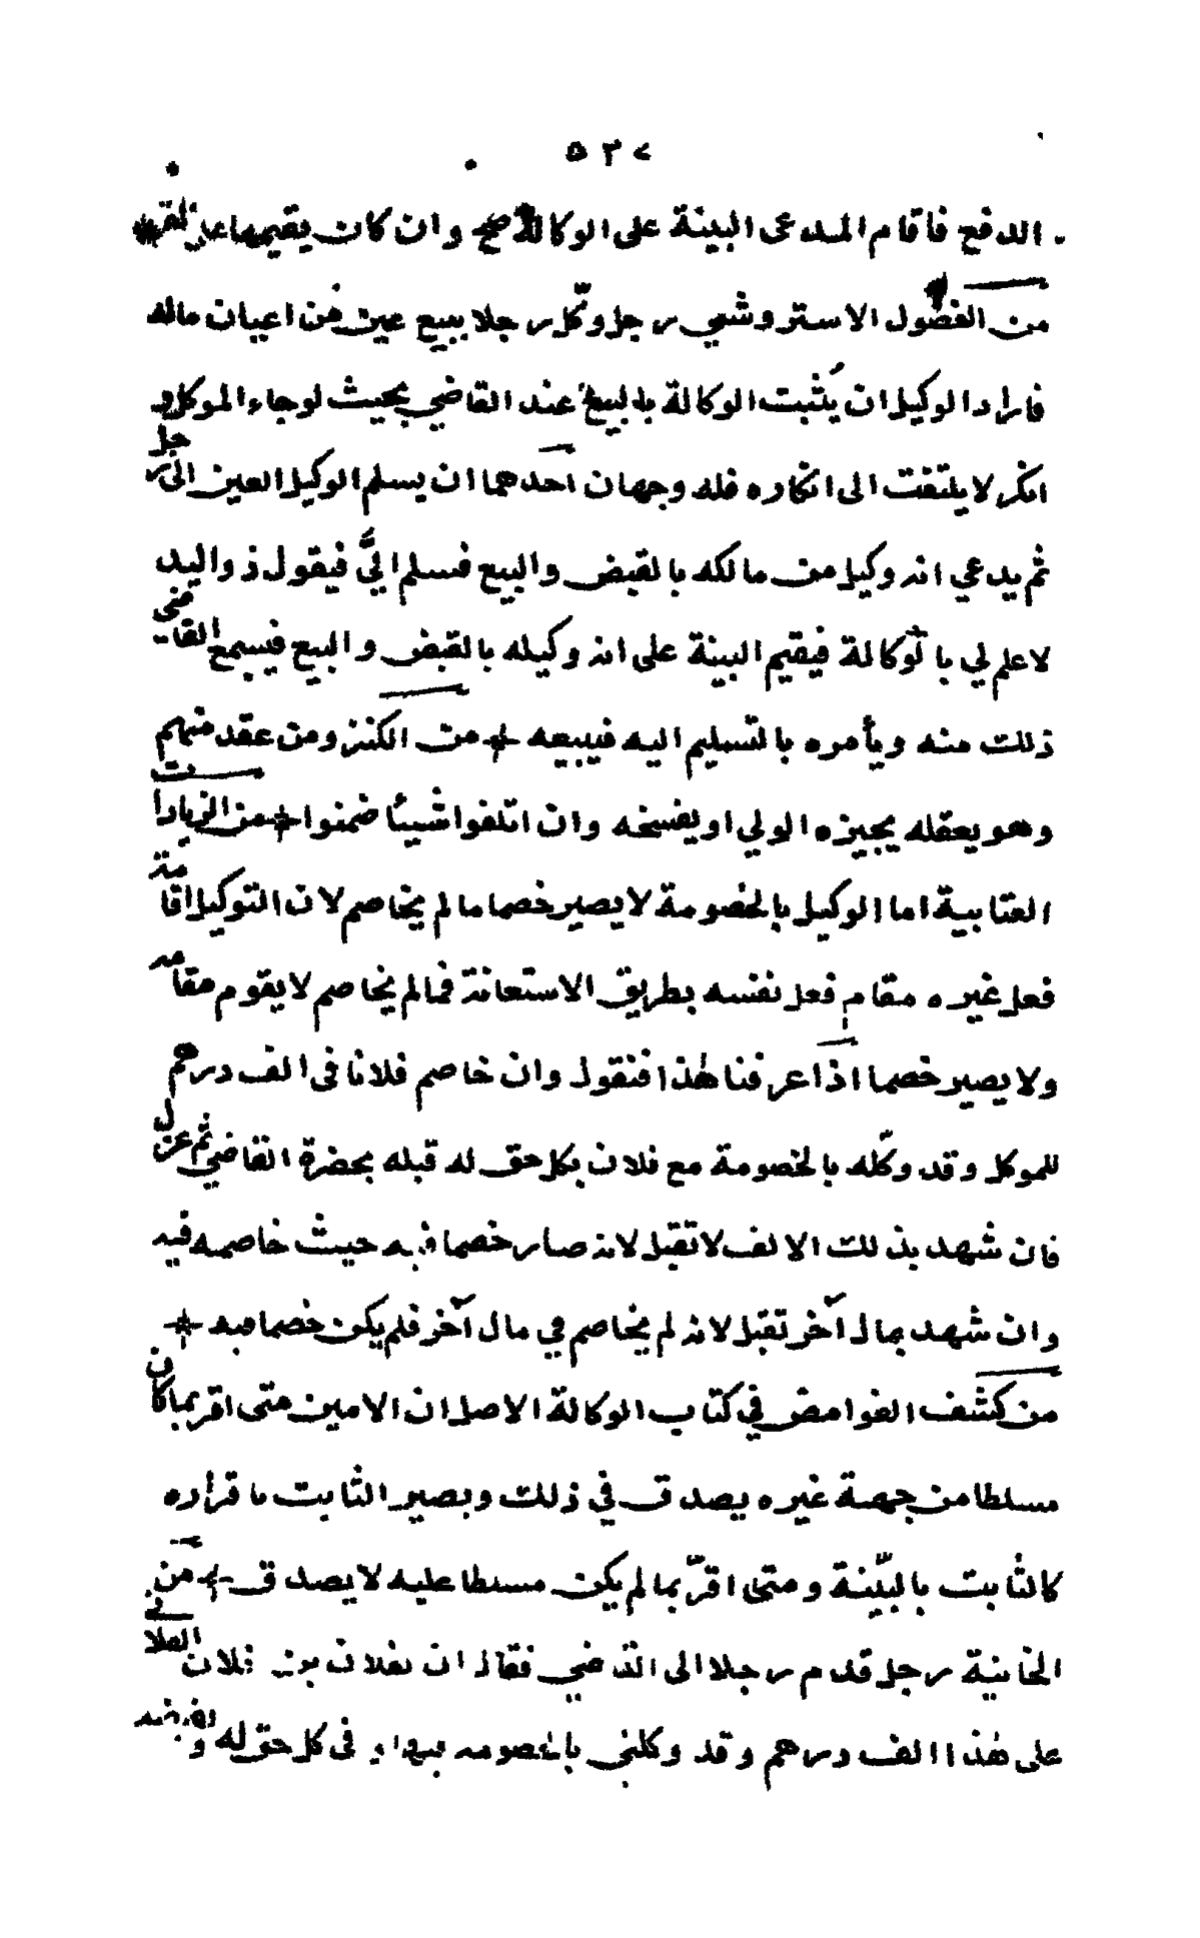 ٥٣٧
الدفع فاقام المدعى البينة على الوكالة صح وان كان يقيمها على المقر
من الفصول الاستروشني رجل وكّل رجلا ببيع عين من اعيان ماله
فاراد الوكيل ان يُثبت الوكالة بالبيع عند القاضي بحيث لو جاء الموكل و
انكر لا يلتفت الى انكاره فله وجهان احدهما ان يسلم الوكيل العين الى رجل
ثم يدعي انه وكيل من مالكه بالقبض والبيع فسلم اليَّ فيقول ذو اليد
لا علم لي بالوكالة فيقيم البينة على انه وكيله بالقبض والبيع فيسمع القاضى
ذلك منه ويأمره بالتسليم اليه فيبيعه من الكنز ومن عقد منهم
وهو يعقله يجيزه الولي او يفسخه وان اتلفوا شيئا ضمنوا من الزيادات
العتابية اما الوكيل بالخصومة لا يصير خصما ما لم يخاصم لان التوكيل اقامة
فعل غيره مقام فعل نفسه بطريق الاستعانة فما لم يخاصم لا يقوم مقامه
ولا يصير خصما اذا عرفنا هٰذا فنقول وان خاصم فلانا فى الف درهم
للموكل وقد وكّله بالخصومة مع فلان بكل حق له قبله بحضرة القاضي ثم عزل
فان شهد بذلك الالف لا تقبل لانه صار خصما فيه حيث خاصمه فيه
وان شهد بمال آخر تقبل لانه لم يخاصم في مال آخر فلم يكن خصما فيه
من كشف الغوامض في كتاب الوكالة الاصل ان الامين متى اقر بما كان
مسلطا من جهة غيره يصدق في ذلك ويصير الثابت باقراره
كالثابت بالبيّنة ومتى اقرّ بما لم يكن مسلطا عليه لا يصدق من
الخانية رجل قدم رجلا الى القاضي فقال ان لفلان بن فلان الفلانى
على هٰذا الف درهم وقد وكلني بالخصومة فيها و فى كل حق له و بقبضه